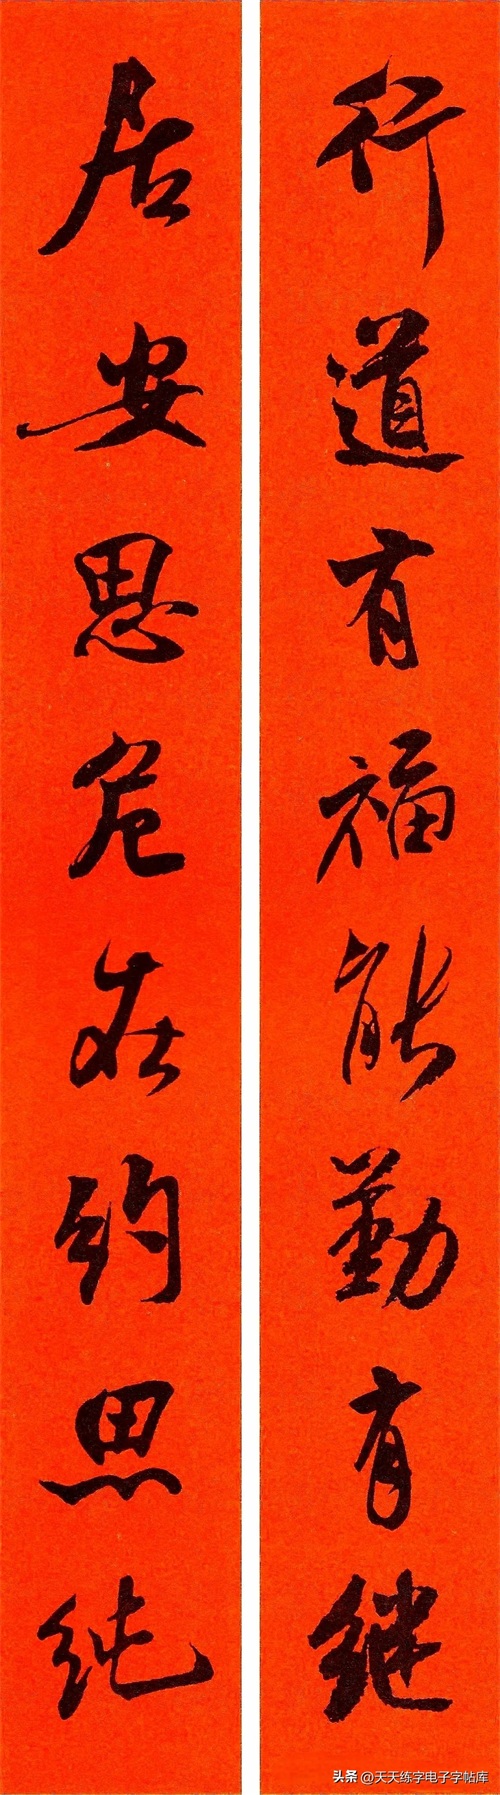 行道有福能勤有继
居安思危在约思纯
头条 @天天练字电子字帖库